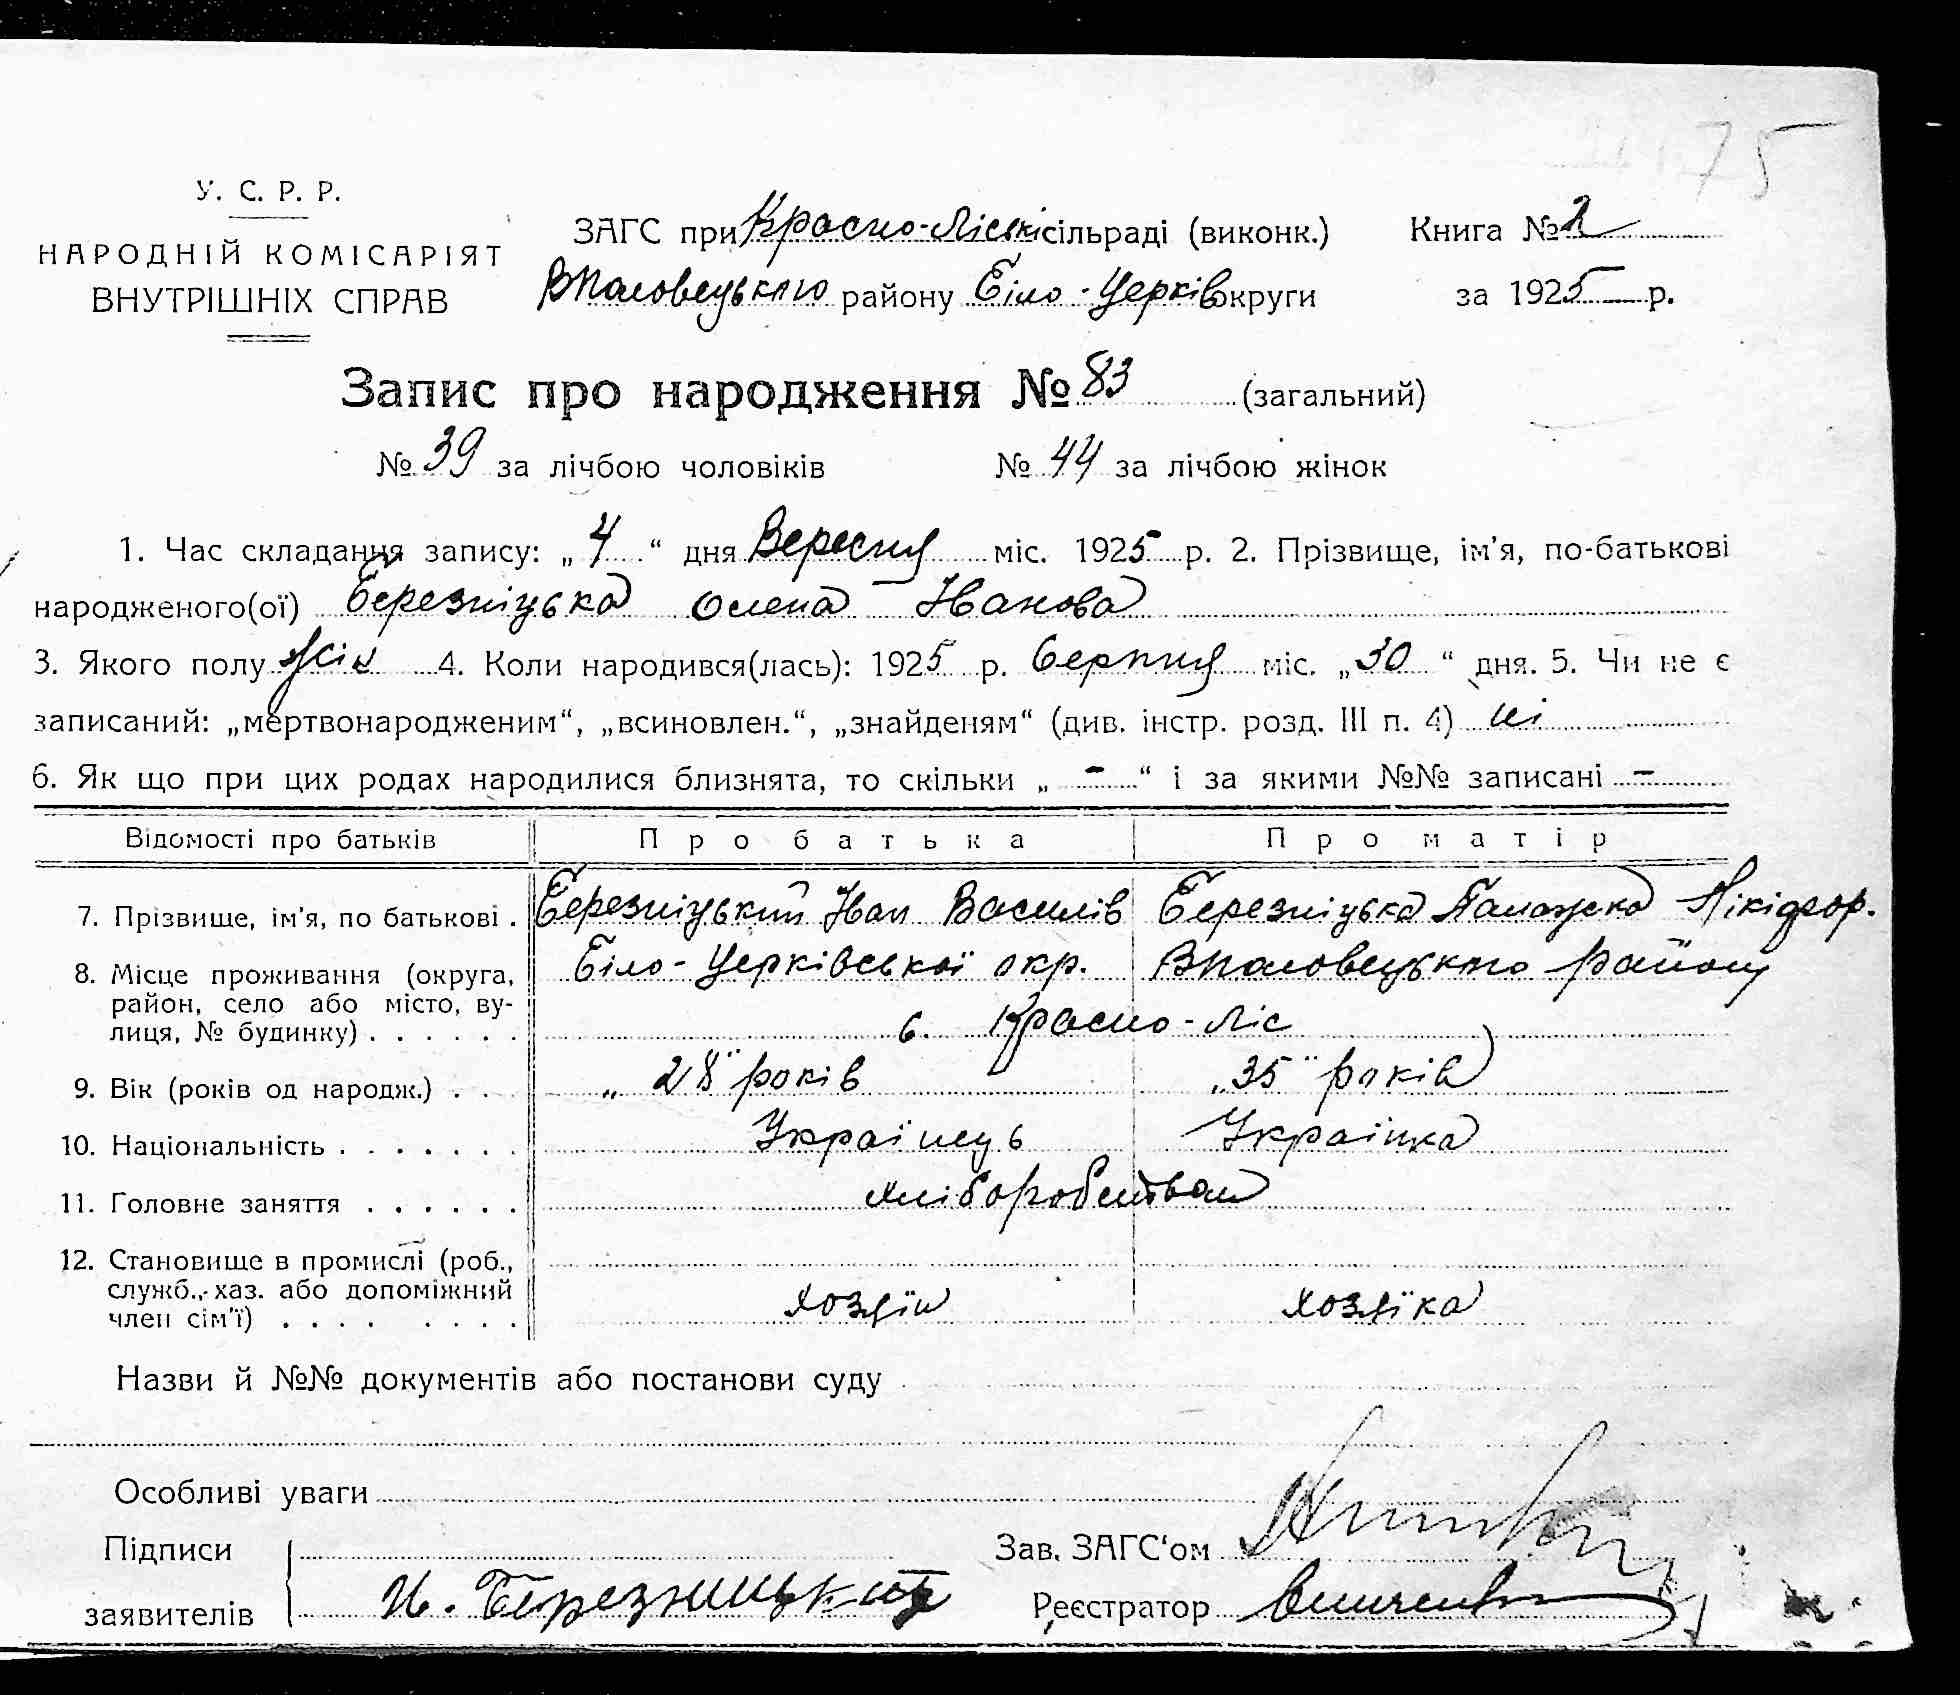 75
У. С. Р. Р.
НАРОДНІЙ КОМІСАРІЯТ
ВНУТРІШНІХ СПРАВ
ЗАГС при Красно-Ліській сільраді (виконк.) Книга № 2
Вполовецького району Біло-Церків округи за 1925 р.
Запис про народження № 83 (загальний)
№ 39 за лічбою чоловіків № 44 за лічбою жінок
1. Час складання запису: „4“ дня Вересня міс. 1925 р. 2. Прізвище, ім'я, по-батькові
народженого(ої) Березніцька Олена Іванова
3. Якого полу жін 4. Коли народився(лась): 1925 р. Серпня міс. „30“ дня. 5. Чи не є
записаний: „мертвонародженим“, „всиновлен.“, „знайденям“ (див. інстр. розд. III п. 4) ні
6. Як що при цих родах народилися близнята, то скільки „ - “ і за якими №№ записані -
Відомості про батьків Про батька Про матір
7. Прізвище, ім'я, по батькові . Березніцький Іван Василів Березніцька Палажка Нікіфор.
8. Місце проживання (округа, Біло-Церківської окр. Вполовецького району
район, село або місто, ву-
лиця, № будинку) . . . . . . с. Красно-Ліс
9. Вік (років од народж.) . . „28" років „35" років
10. Національність . . . . . . . Українець Українка
11. Головне заняття . . . . . . хліборобством
12. Становище в промислі (роб.,
служб., хаз. або допоміжний хозяїн хозяїка
член сім'ї) . . . . . . . .
Назви й №№ документів або постанови суду
Особливі уваги
Підписи Зав. ЗАГС'ом
заявителів И. Березницький Реєстратор